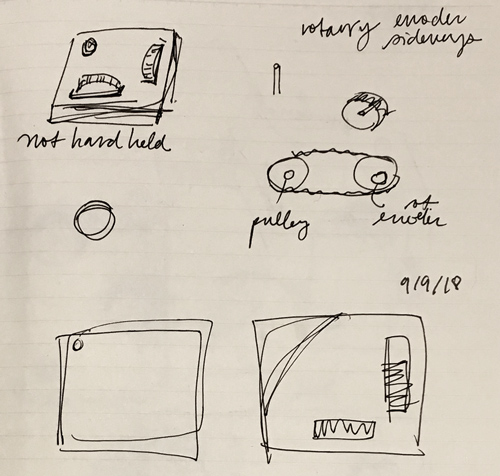 rotary encoder
sideways
not hand held
pulley
rot
encoder
9/9/18